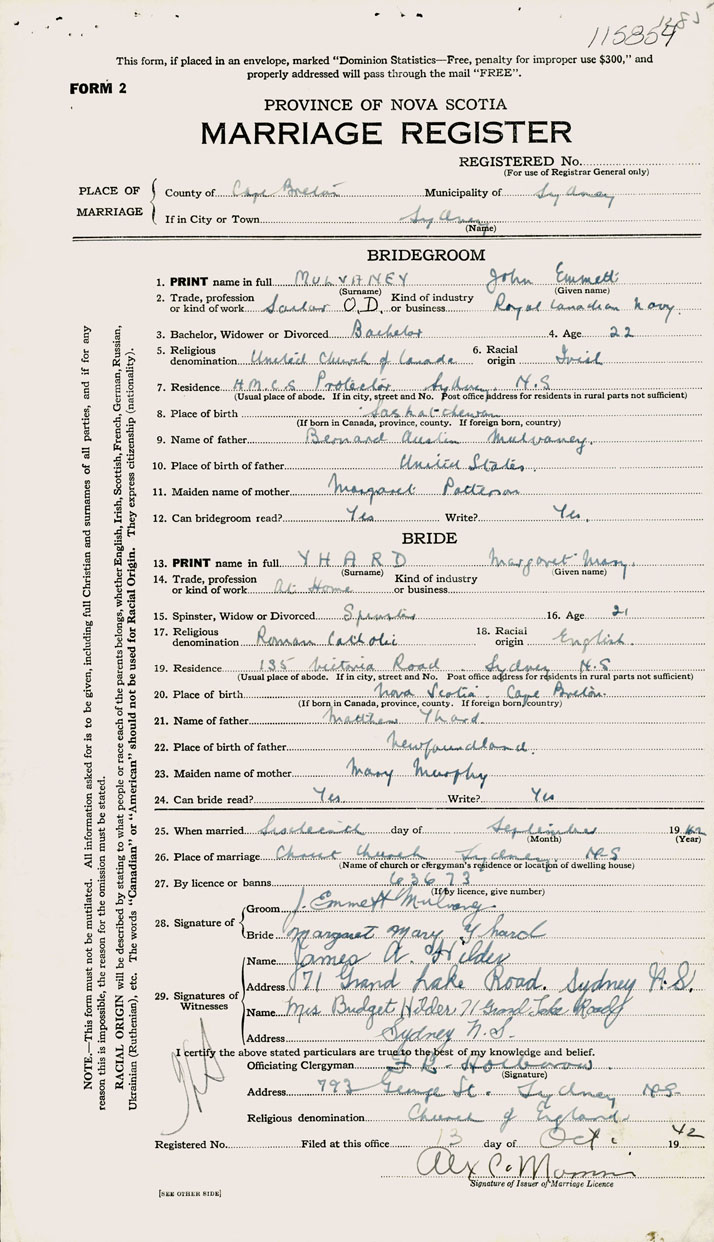 115854
This form, if placed in an envelope, marked "Dominion Statistics—Free, penalty for improper use $300," and
properly addressed will pass through the mail "FREE".
FORM 2
PROVINCE OF NOVA SCOTIA
MARRIAGE REGISTER
REGISTERED No.
(For use of Registrar General only)
PLACE OF MARRIAGE
County of Cape Breton Municipality of Sydney
If in City or Town Sydney
(Name)
BRIDEGROOM
1. PRINT name in full MULVANEY John Emmett
(Surname) (Given name)
2. Trade, profession or kind of work Sailor O.D. Kind of industry or business Royal Canadian Navy.
3. Bachelor, Widower or Divorced Bachelor 4. Age 22
5. Religious denomination United Church of Canada 6. Racial origin Irish
7. Residence H.M.C.S Protector Sydney N.S
(Usual place of abode. If in city, street and No. Post office address for residents in rural parts not sufficient)
8. Place of birth Saskatchewan
(If born in Canada, province, county. If foreign born, country)
9. Name of father Bernard Austin Mulvaney.
10. Place of birth of father United States.
11. Maiden name of mother Margaret Patterson
12. Can bridegroom read? Yes Write? Yes.
BRIDE
13. PRINT name in full YHARD Margaret Mary.
(Surname) (Given name)
14. Trade, profession or kind of work At Home Kind of industry or business
15. Spinster, Widow or Divorced Spinster 16. Age 21
17. Religious denomination Roman Catholic 18. Racial origin English.
19. Residence 135 Victoria Road. Sydney N.S
(Usual place of abode. If in city, street and No. Post office address for residents in rural parts not sufficient)
20. Place of birth Nova Scotia. Cape Breton.
(If born in Canada, province, county. If foreign born, country)
21. Name of father Matthew Yhard.
22. Place of birth of father Newfoundland.
23. Maiden name of mother Mary Murphy
24. Can bride read? Yes Write? Yes
25. When married Sixteenth day of September 1942
(Month) (Year)
26. Place of marriage Christ Church Sydney N.S
(Name of church or clergyman's residence or location of dwelling house)
27. By licence or banns 63673
(If by licence, give number)
28. Signature of
Groom J. Emmett Mulvaney
Bride Margaret Mary Yhard
29. Signatures of Witnesses
Name James A. Hilder
Address 71 Grand Lake Road. Sydney N.S.
Name Mrs Bridget Hilder 71 Grand Lake Road
Address Sydney N.S.
I certify the above stated particulars are true to the best of my knowledge and belief.
Officiating Clergyman
(Signature)
Address 793 George St. Sydney N.S.
Religious denomination Church of England
Registered No. Filed at this office 13 day of Oct. 1942
Alex
Signature of Issuer of Marriage Licence
[SEE OTHER SIDE]
NOTE.—This form must not be mutilated. All information asked for is to be given, including full Christian and surnames of all parties, and if for any
reason this is impossible, the reason for the omission must be stated.
RACIAL ORIGIN will be described by stating to what people or race each of the parents belongs, whether English, Irish, Scottish, French, German, Russian,
Ukrainian (Ruthenian), etc. The words "Canadian" or "American" should not be used for Racial Origin. They express citizenship (nationality).